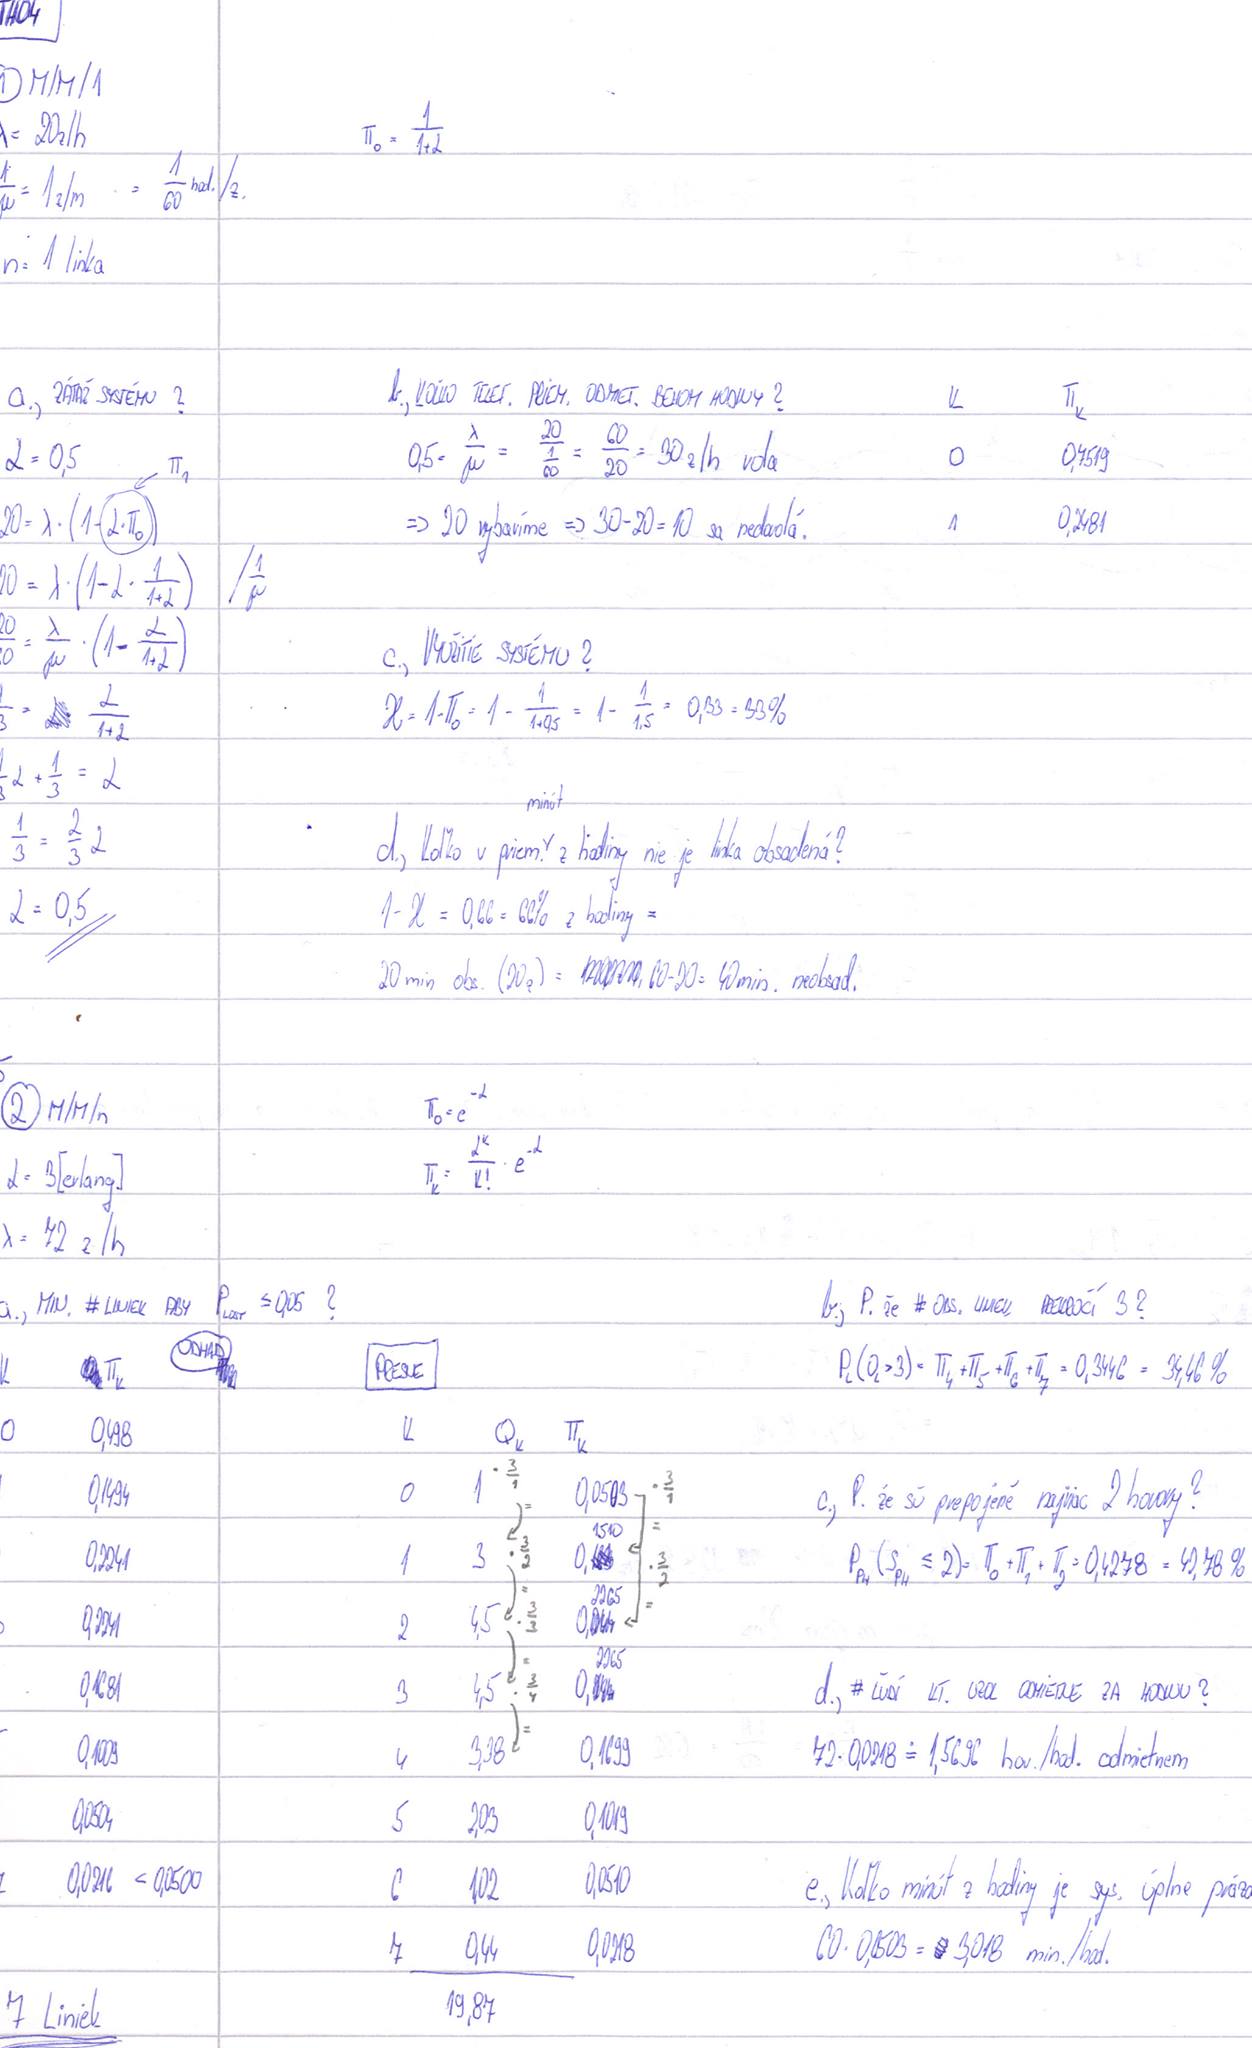 TH04
1 M/M/1
λ = 20z/h
π₀ = 1/(1+α)
1/μ = 1z/m = 1/60 hod./z.
n = 1 linka
a., ZÁŤAŽ SYSTÉMU ?
α = 0,5
π₁
20 = λ·(1-α·π₀)
20 = λ·(1-α·1/(1+α)) /1/μ
20/60 = λ/μ·(1-α/(1+α))
1/3 = α/(1+α)
1/3 α + 1/3 = α
1/3 = 2/3 α
α = 0,5
b., KOĽKO TELEF. PRIEM. ODMIET. BEHOM HODINY ?
0,5 = λ/μ = 20/(1/60) = 60/20 = 30z/h volá
=> 20 vybavíme => 30-20=10 sa nedovolá.
K π_K
0 0,7519
1 0,2481
c., VYUŽITIE SYSTÉMU ?
ϰ = 1-π₀ = 1 - 1/(1+0,5) = 1 - 1/1,5 = 0,33 = 33%
minút
d., Koľko v priem. z hodiny nie je linka obsadená?
1-ϰ = 0,66 = 66% z hodiny =
20 min obs. (20z) = 60-20 = 40 min. neobsad.
2 M/M/n
π₀ = e^-α
α = 3 [erlang]
π_K = α^K/K! · e^-α
λ = 72 z/h
a., MIN. # LINIEK ABY P_LOST ≤ 0,05 ?
K π_K ODHAD
0 0,498
0,1494
0,2241
0,2241
0,1681
0,1009
0,0504
0,0216 < 0,0500
7 Liniek
PRESNE
K Q_K π_K
0 1 0,0503
·3/1 = ·3/1 =
1 3 0,1510
·3/2 = ·3/2 =
2 4,5 0,2265
·3/3 =
3 4,5 0,2265
·3/4 =
4 3,38 0,1699
5 2,03 0,1019
6 1,02 0,0510
7 0,44 0,0218
19,87
b., P. že # OBS. LINIEK PREKROČÍ 3 ?
(>3) = π₄+π₅+π₆+π₇ = 0,3446 = 34,46 %
c., P. že sú prepojené najviac 2 hovory?
(≤ 2) = π₀+π₁+π₂ = 0,4278 = 42,78 %
d., # ĽUDÍ KT. UZOL ODMIETNE ZA HODINU ?
72·0,0218 ≐ 1,5696 hov./hod. odmietnem
e., Koľko minút z hodiny je sys. úplne
60·0,0503 = 3,018 min./hod.